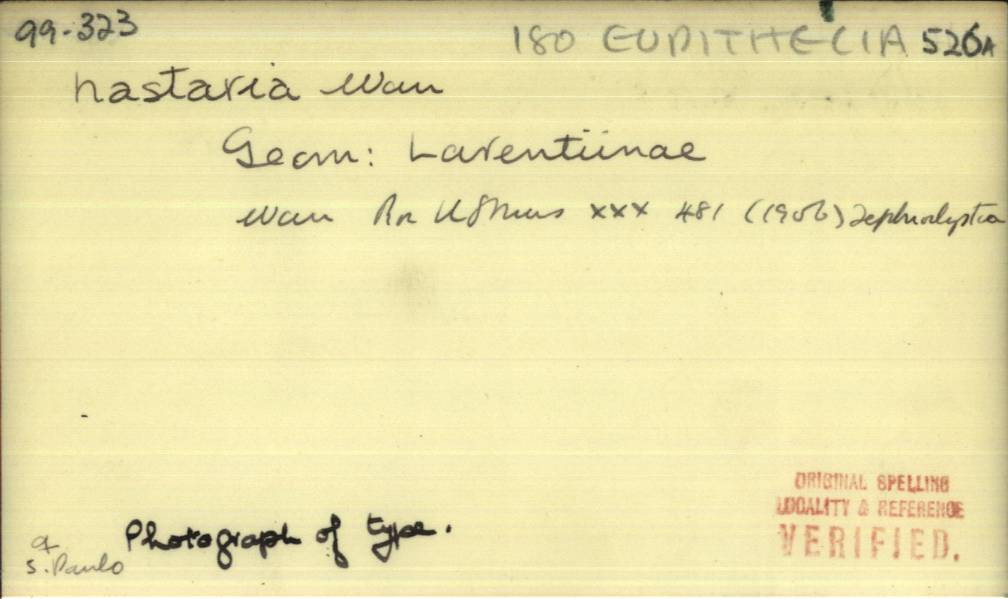 99-323
180 EUPITHECIA 526A
hastaria Warr
Geom: Larentiinae
Warr Pr US Mus xxx 481 (1906) Tephroclystia
ORIGINAL SPELLING
LOCALITY & REFERENCE
VERIFIED.
Photograph of type.
S. Paulo